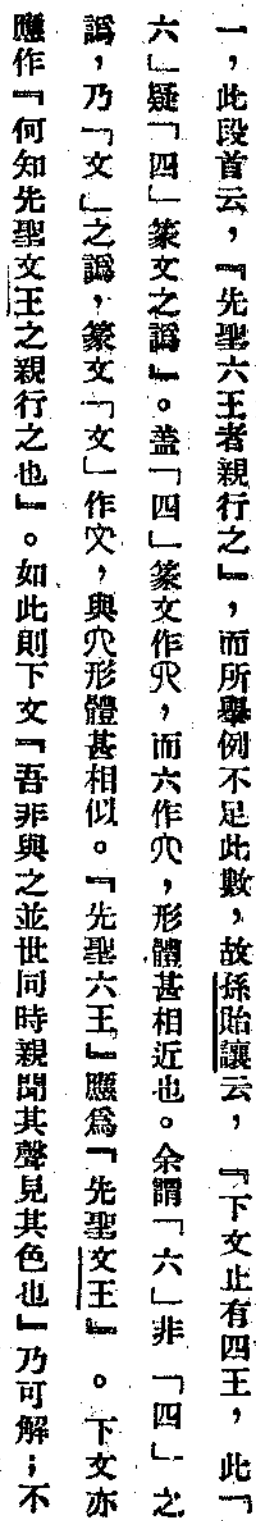 一，此段首云，『先聖六王者親行之』，而所舉例不足此數，故孫貽讓云，『下文止有四王，此「
六」疑「四」篆文之譌』。蓋「四」篆文作，而六作，形體甚相近也。余謂「六」非「四」之
譌，乃「文」之譌，篆文「文」作，與形體甚相似。『先聖六王』應爲『先聖文王』。下文亦
應作『何知先聖文王之親行之也』。如此則下文『吾非與之並世同時親聞其聲見其色也』乃可解；不